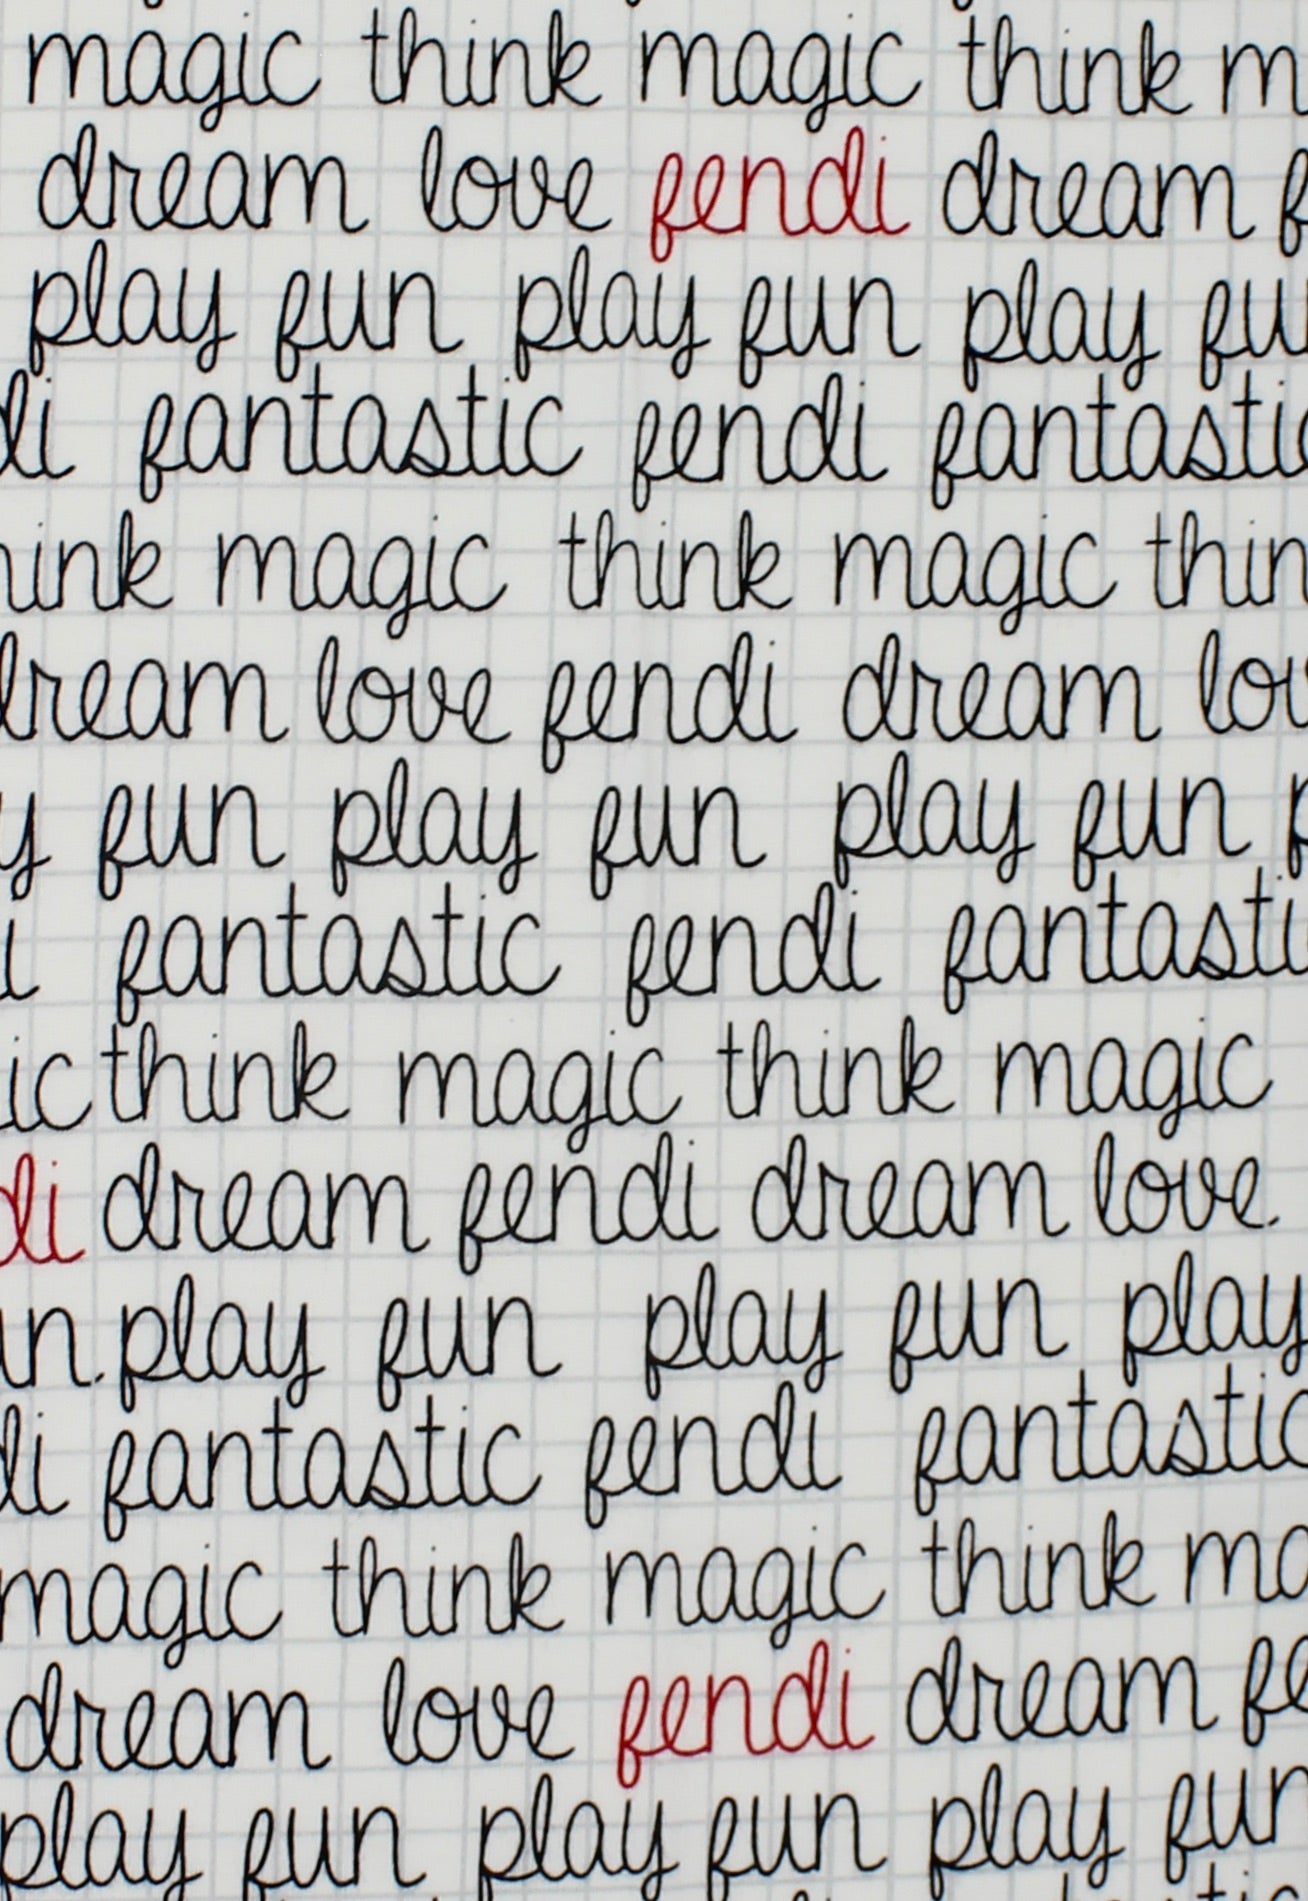 magic think magic think m
dream love fendi dream f
play fun play fun play fu
di fantastic fendi fantastic
hink magic think magic thin
dream love fendi dream lov
y fun play fun play fun p
i fantastic fendi fantasti
ic think magic think magic
di dream fendi dream love.
un. play fun play fun play
di fantastic fendi fantastic
magic think magic think ma
dream love fendi dream fe
play fun play fun play fun